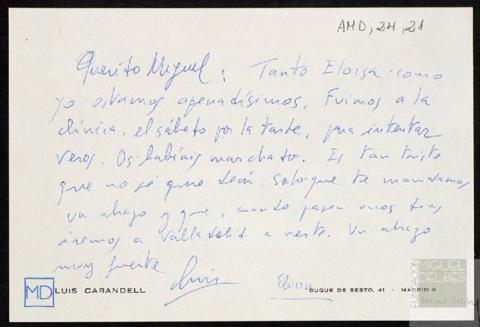 AMD, 24, 21
Querido Miguel: Tanto Eloísa como
yo estamos apenadísimos. Fuimos a la
clínica, el sábado por la tarde, para intentar
veros. Os habíais marchado. Es tan triste
que no sé que decir. Solo que te mandamos
un abrazo y que, cuando pasen unos días
iremos a Valladolid a verte. Un abrazo
muy fuerte
Luis Eloísa
MD LUIS CARANDELL DUQUE DE SESTO, 41 - MADRID-9
FUNDACIÓN MIGUEL DELIBES